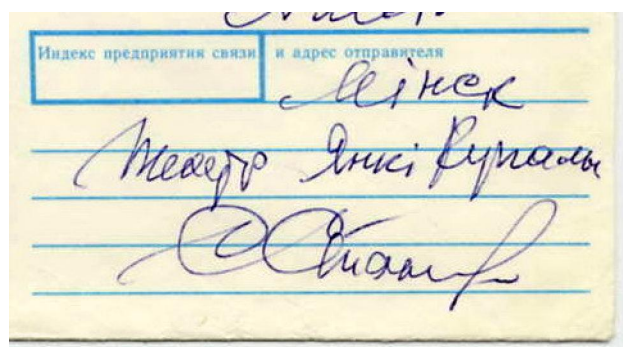 Индекс предприятия связи и адрес отправителя
Мінск
Театр Янкі Купалы